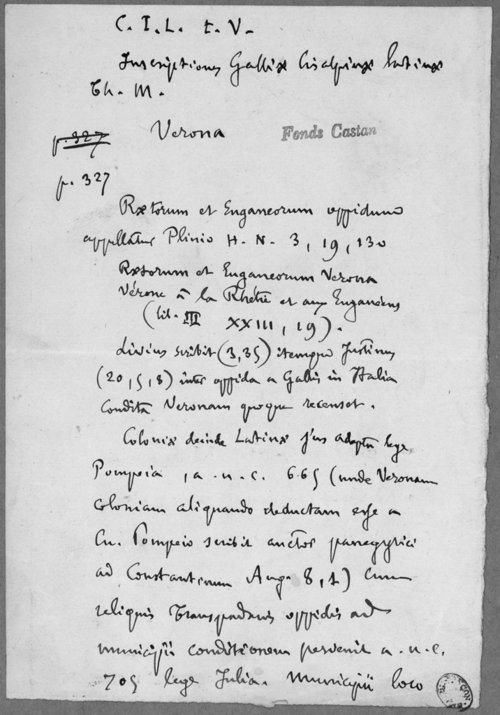 C. I. L. t. V.
Inscriptiones Galliæ Cisalpinæ latinæ
Th. M.
Verona
Fonds Castan
p. 327
p. 327
Rætorum et Euganeorum oppidum
appellatur Plinio H. N. 3, 19, 130
Rætorum et Euganeorum Verona
Vérone à la Rhétie et aux Euganéens
(lib. III XXIII, 19).
Livius scribit (3,35) itemque Justinus
(20, 5, 8) inter oppida a Gallis in Italia
condita Veronam quoque recenset.
Coloniæ deinde Latinæ jus adepta lege
Pompeia, a. u. c. 665 (unde Veronam
coloniam aliquando deductam esse a
Cn. Pompeio scribit auctor panegyrici
ad Constantinum Aug. 8, 1) cum
reliquis Transpadanis oppidis ad
municipii conditionem pervenit a. u. c.
705 lege Julia. Municipii loco